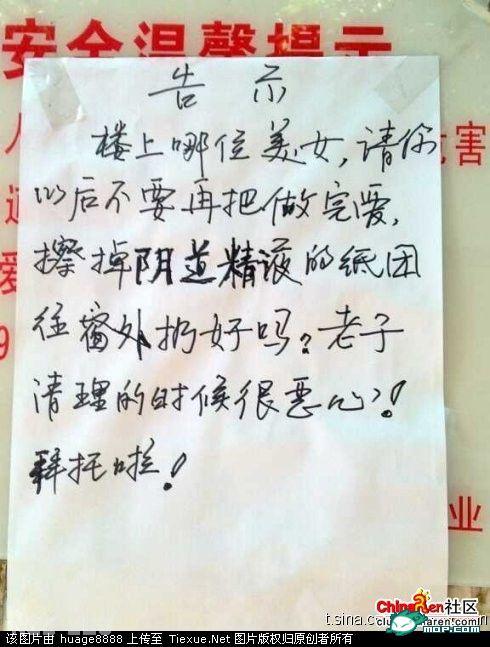 安全温馨提示
告示
楼上哪位美女,请你
以后不要再把做完爱,
擦掉阴道精液的纸团
往窗外扔好吗?老子
清理的时候很恶心!
拜托啦!
害
爱
9
业
ChinaRen社区
t.sina.c
mop.com
该图片由 huage8888 上传至 Tiexue.Net 图片版权归原创者所有